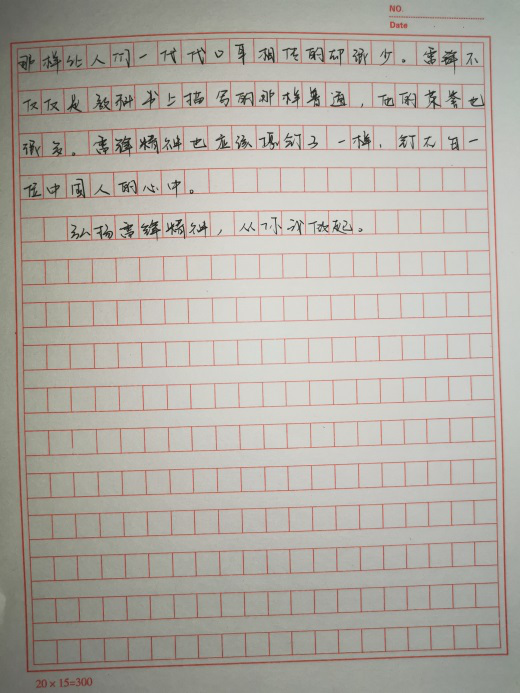 NO.
Date
那样让人们一代代口耳相传的却很少。雷锋不
仅仅是教科书上描写的那样普通，他的荣誉也
很多。雷锋精神也应该像钉子一样，钉在每一
位中国人的心中。
弘扬雷锋精神，从你我做起。
20×15=300